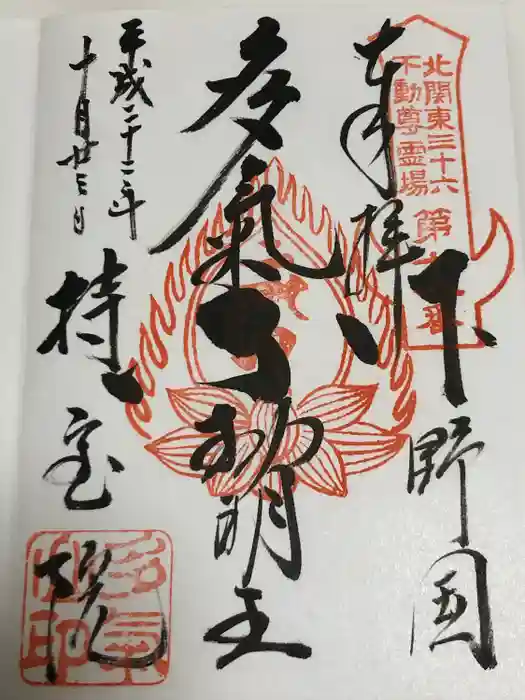 奉拝
下野国
北関東三十六
不動尊霊場
第十八番
多氣不動明王
平成二十二年
十月廿三日
持宝院
多氣